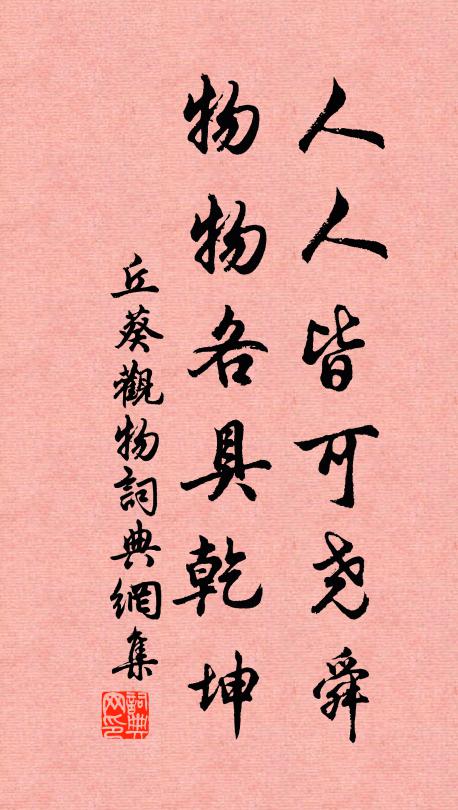 人人皆可尧舜
物物各具乾坤
丘葵觀物詞典網集
詞典网印